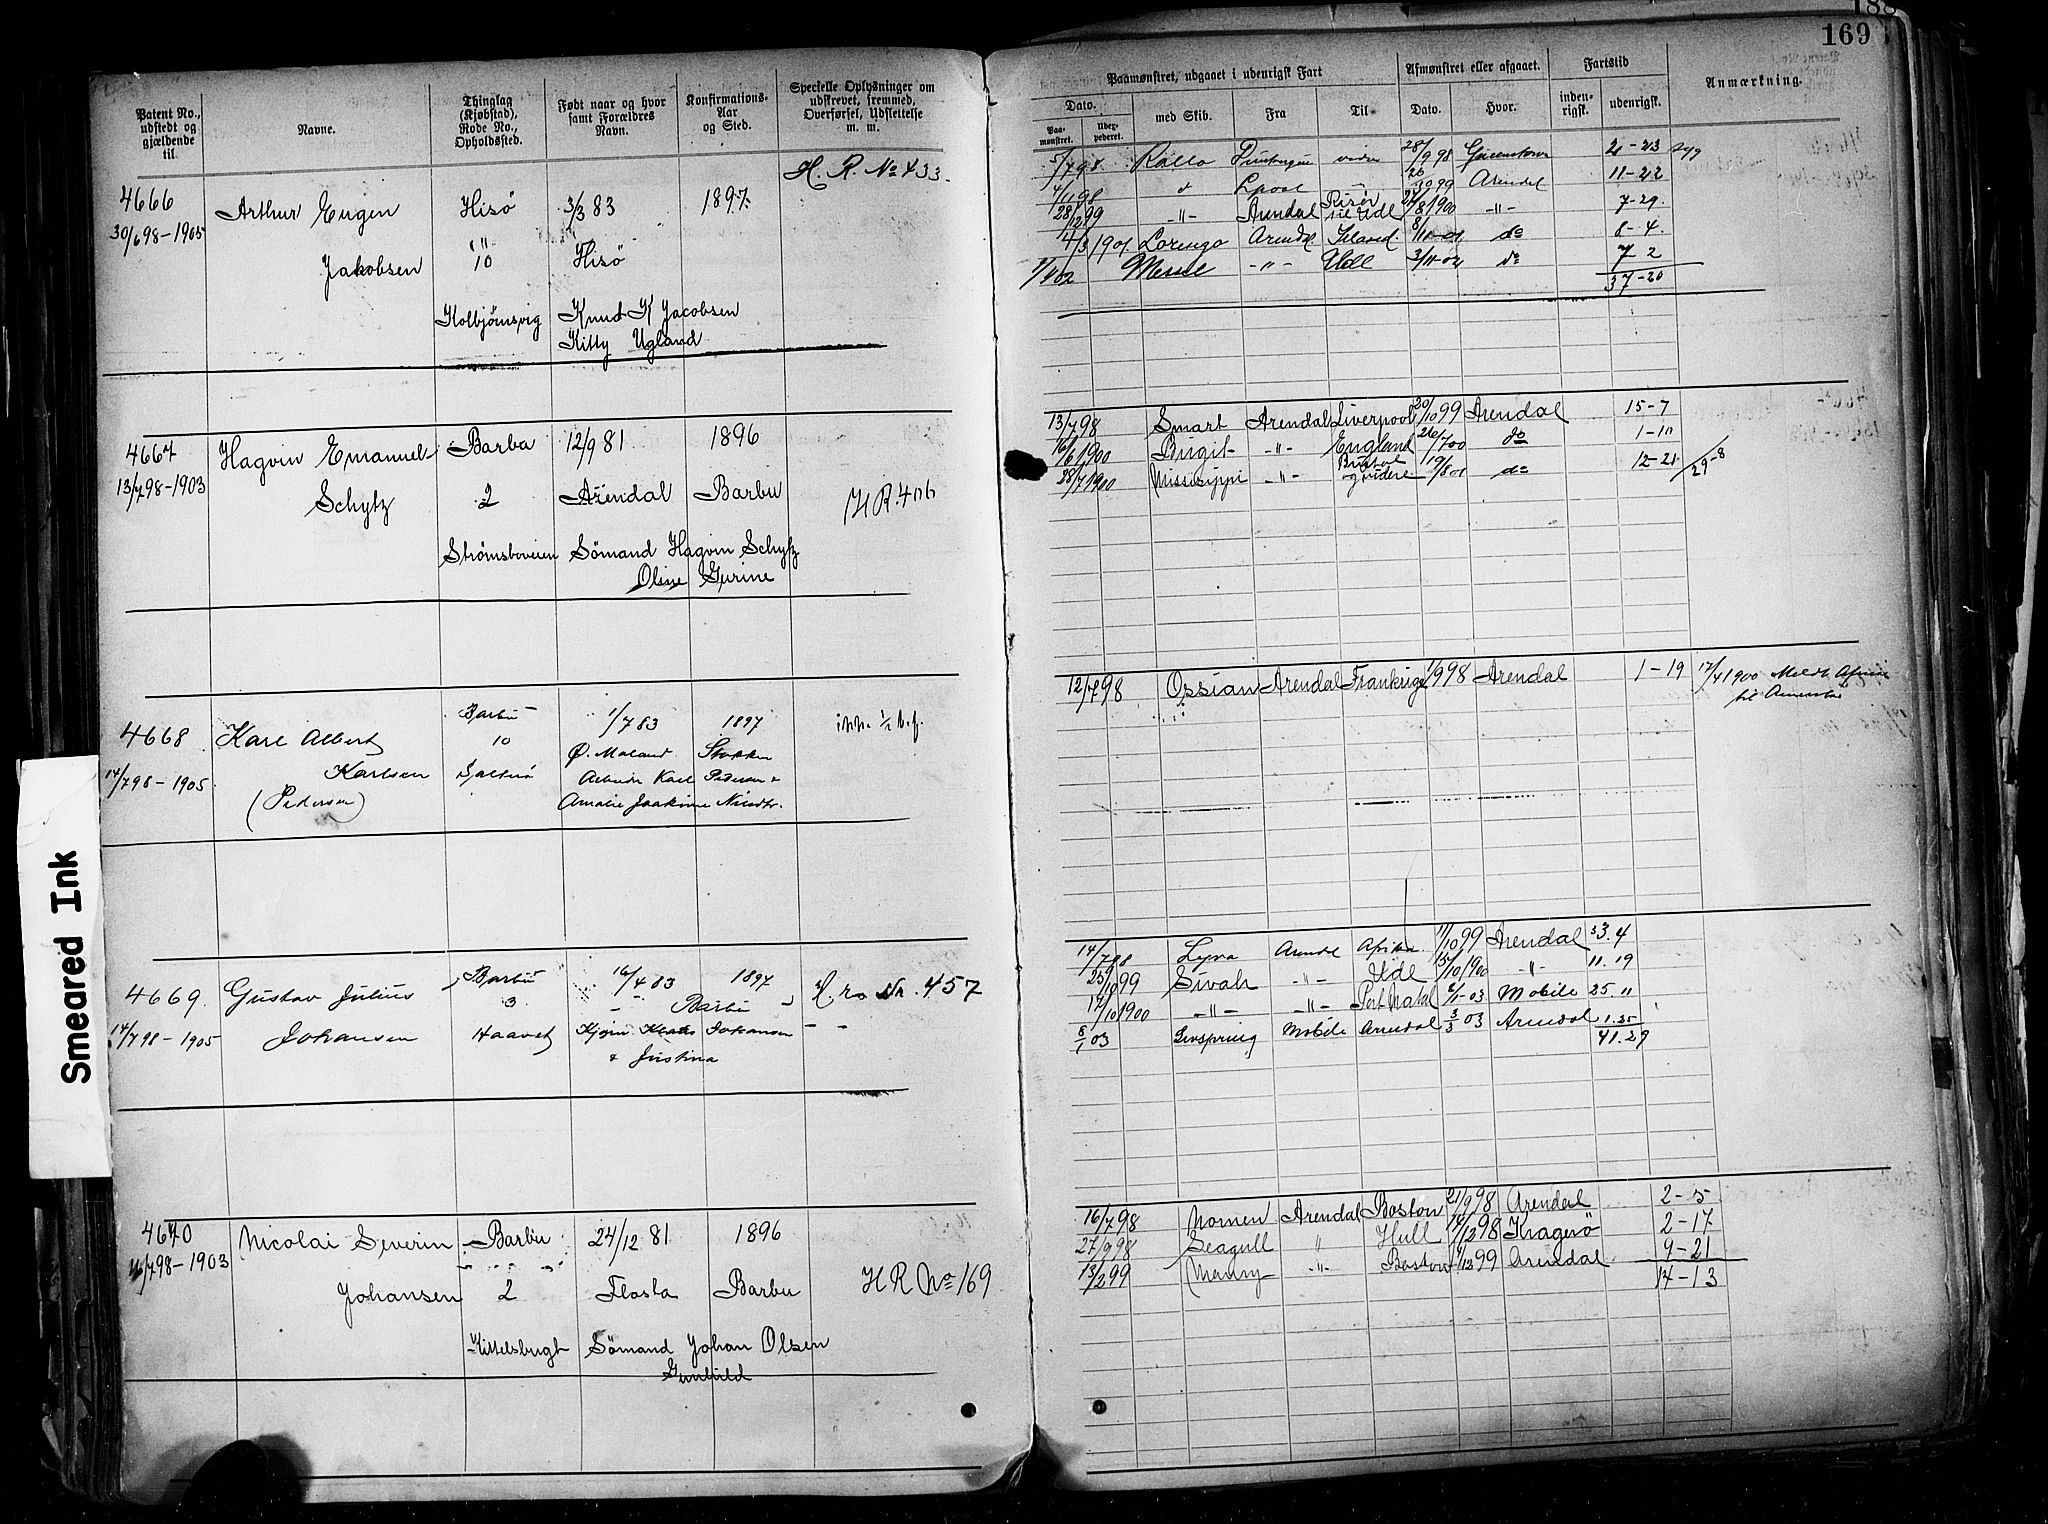 188
169
Patent No., udstedt og gjældende til
Navne.
Thinglag (Kjøbstad), Rode No., Opholdssted.
Født naar og hvor samt Forældres Navn.
Konfirmations-Aar og Sted.
Specielle Oplysninger om udskrevet, fremmed, Overførsel, Udslettelse m. m.
Paamønstret, udgaaet i udenrigsk Fart
Dato.
Paamønstret.
med Skib.
Fra
Til
Afmønstret eller afgaaet.
Dato.
Hvor.
Fartstid
indenrigsk.
udenrigsk.
Anmærkning.
4666
30/6 98-1905
Arthur Eugen
Jakobsen
Hisø
"
10
Kolbjørnsvig
3/3 83
Hisø
Knud K Jacobsen
Kitty Ugland
1897
H. R. No 433
5/7 98 Rollo 28/9 98 21-23 syg
4/11 98 Arendal 11-22
28/12 99 -"- Arendal Risør til Udl 8 1900 -"- 7-29
4/3 1901 Lorengo Arendal Island 8/11-01 do 8-4
02 -"- Udl 3/11-02 do 7-2
37-20
4667
13/7 98-1903
Hagvin Emanuel
Schytz
Barbu
2
Strømsboveien
12/9 81
Arendal
Sömand Hagvin Schytz
Olsine Gurine
1896
Barbu
H R. 406
13/7 98 Smart Arendal Liverpool 20/10 99 Arendal 15-7
16/6 1900 Birgit -"- England 26/7 00 do 1-10
28/7 1900 Missisippi -"- Bristol og videre 19/8 01 do 12-21
29-8
4668
14/7 98-1905
Karl Albert
Karlsen
(Pedersen)
Barbu
10
Saltrø
1/7 83
Ø. Moland
Arbeider Karl Pedersen &
Amalie Joakime Nilsdtr.
1897
Stokken
12/7 98 Ossian Arendal Frankrige 1/9 98 Arendal 1-19 17/4 1900 Meldt
til Amerika
4669
14/7 98-1905
Gustav Julius
Johansen
Barbu
3
Haavet
16/4 83
Barbu
Johansen
& Justina
1897
H. r. Nr. 457
14/7 98 Lyra Arendal Afrika 11/10 99 Arendal 3.4
25/10 99 Sivah -"- Udl 15/10 1900 -"- 11.19
17/10 1900 -"- -"- Port Natal 6/1-03 Mobile 25.11
8/1 03 Livspring Mobile Arendal 3/3 03 Arendal 1.25
41.29
4670
16/7 98-1903
Nicolai Severin
Johansen
Barbu
2
Kittelsbugt
24/12 81
Flosta
Sömand Johan Olsen
Gunhild
1896
Barbu
H R No 169
16/7 98 Nornen Arendal Boston 21/9 98 Arendal 2-5
27/9 98 Seagull " Hull 14/12 98 Kragerø 2-17
13/2 99 -"- Boston 4/12 99 Arendal 9-21
14-13
Smeared Ink